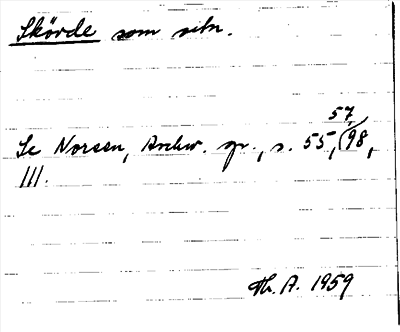 Skörde som vitn.
Se Noreen, Ärchiv. gr., s. 55, 57, 98,
111.
Th. A. 1959